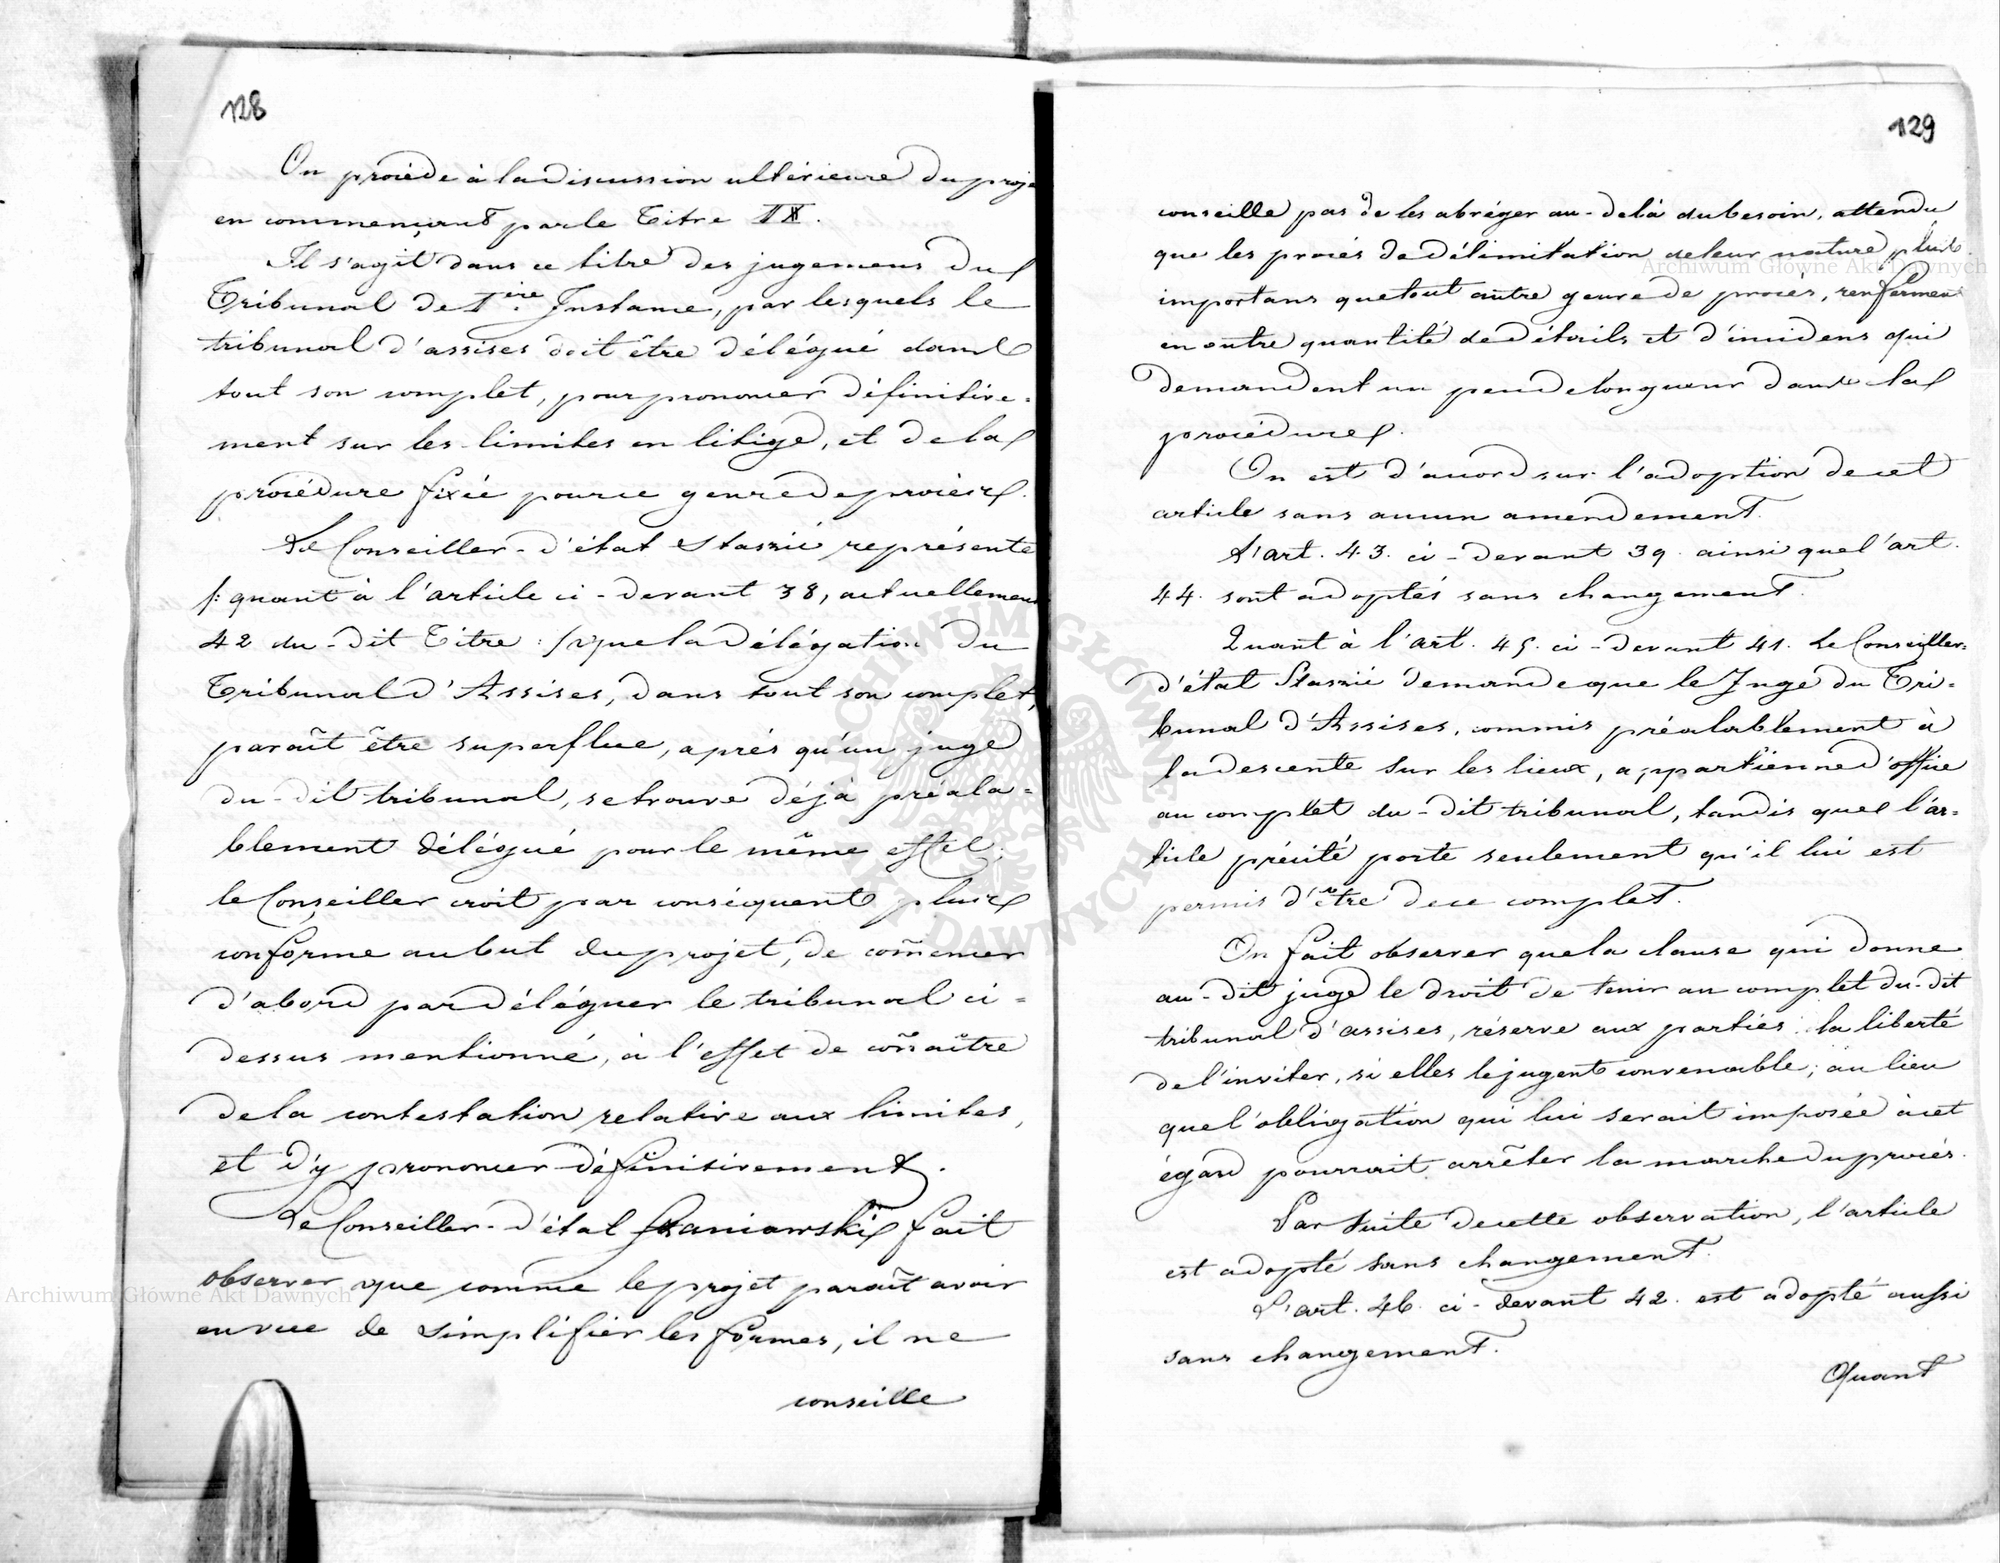 128
On procéde à la discussion ultérieure du proje
en commençant par le Titre IX.
Il s'agit dans ce titre des jugemens du
Tribunal de 1ère Instance, par lesquels le
tribunal d'assises doit être délégué dans
tout son complet, pour prononcer définitive=
ment sur les limites en litige, et de la
procédure fixée pour ce genre de procès.
Le Conseiller-d'état Staszic représente
/: quant à l'article ci-devant 38, actuellement
42 du-dit Titre :/ que la délégation du
Tribunal d'Assises, dans tout son complet,
paraît être superflue, après qu'un juge
du-dit tribunal, se trouve déjà préala=
blement délégué pour le même effet;
le Conseiller croit par conséquent plus
conforme au but du projet, de com̃encer
d'abord par déléguer le tribunal ci=
dessus mentionné, à l'effet de coñaître
de la contestation relative aux limites,
et d'y prononcer définitivement.
Le Conseiller-d'état Szaniawski fait
observer que comme le projet paraît avoir
en vue de simplifier les formes, il ne
conseille
129
conseille pas de les abréger au-delà du besoin, attendu
que les procés de délimitation de leur nature plus
importans que tout autre genre de procés, renferment
en outre quantité de détails et d'incidens qui
demandent un peu de longueur dans la
procédure.
On est d'accord sur l'adoption de cet
article sans aucun amendement.
L'art. 43. ci-devant 39. ainsi que l'art.
44. sont adoptés sans changement.
Quant à l'art. 45. ci-devant 41. Le Conseiller=
d'état Staszic demande que le Juge du Tri=
bunal d'Assises, commis préalablement à
la descente sur les lieux, appartienne d'office
au complet du-dit tribunal, tandis que l'ar=
ticle précité porte seulement qu'il lui est
permis d'être de ce complet.
On fait observer que la clause qui donne
au-dit juge le droit de tenir au complet du-dit
tribunal d'assises, réserve aux parties la liberté
de l'inviter, si elles le jugent convenable; au lieu
que l'obligation qui lui serait imposée à cet
égard pourrait arrêter la marche du procés.
Par suite de cette observation, l'article
est adopté sans changement.
L'art. 46. ci-devant 42. est adopté aussi
sans changement.
Quant
Archiwum Główne Akt Dawnych
Archiwum Główne Akt Dawnych
ARCHIWUM GŁÓWNE AKT DAWNYCH